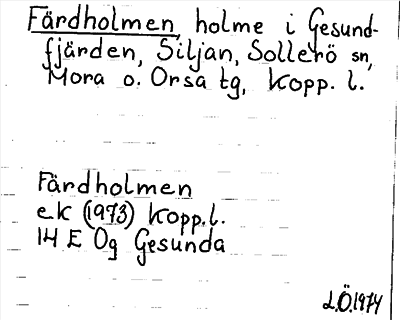 Färdholmen, holme i Gesund-
fjärden, Siljan, Sollerö sn,
Mora o. Orsa tg, Kopp. l.
Färdholmen
ek (1973) Kopp.l.
14 E 0g Gesunda
L.Ö.1974